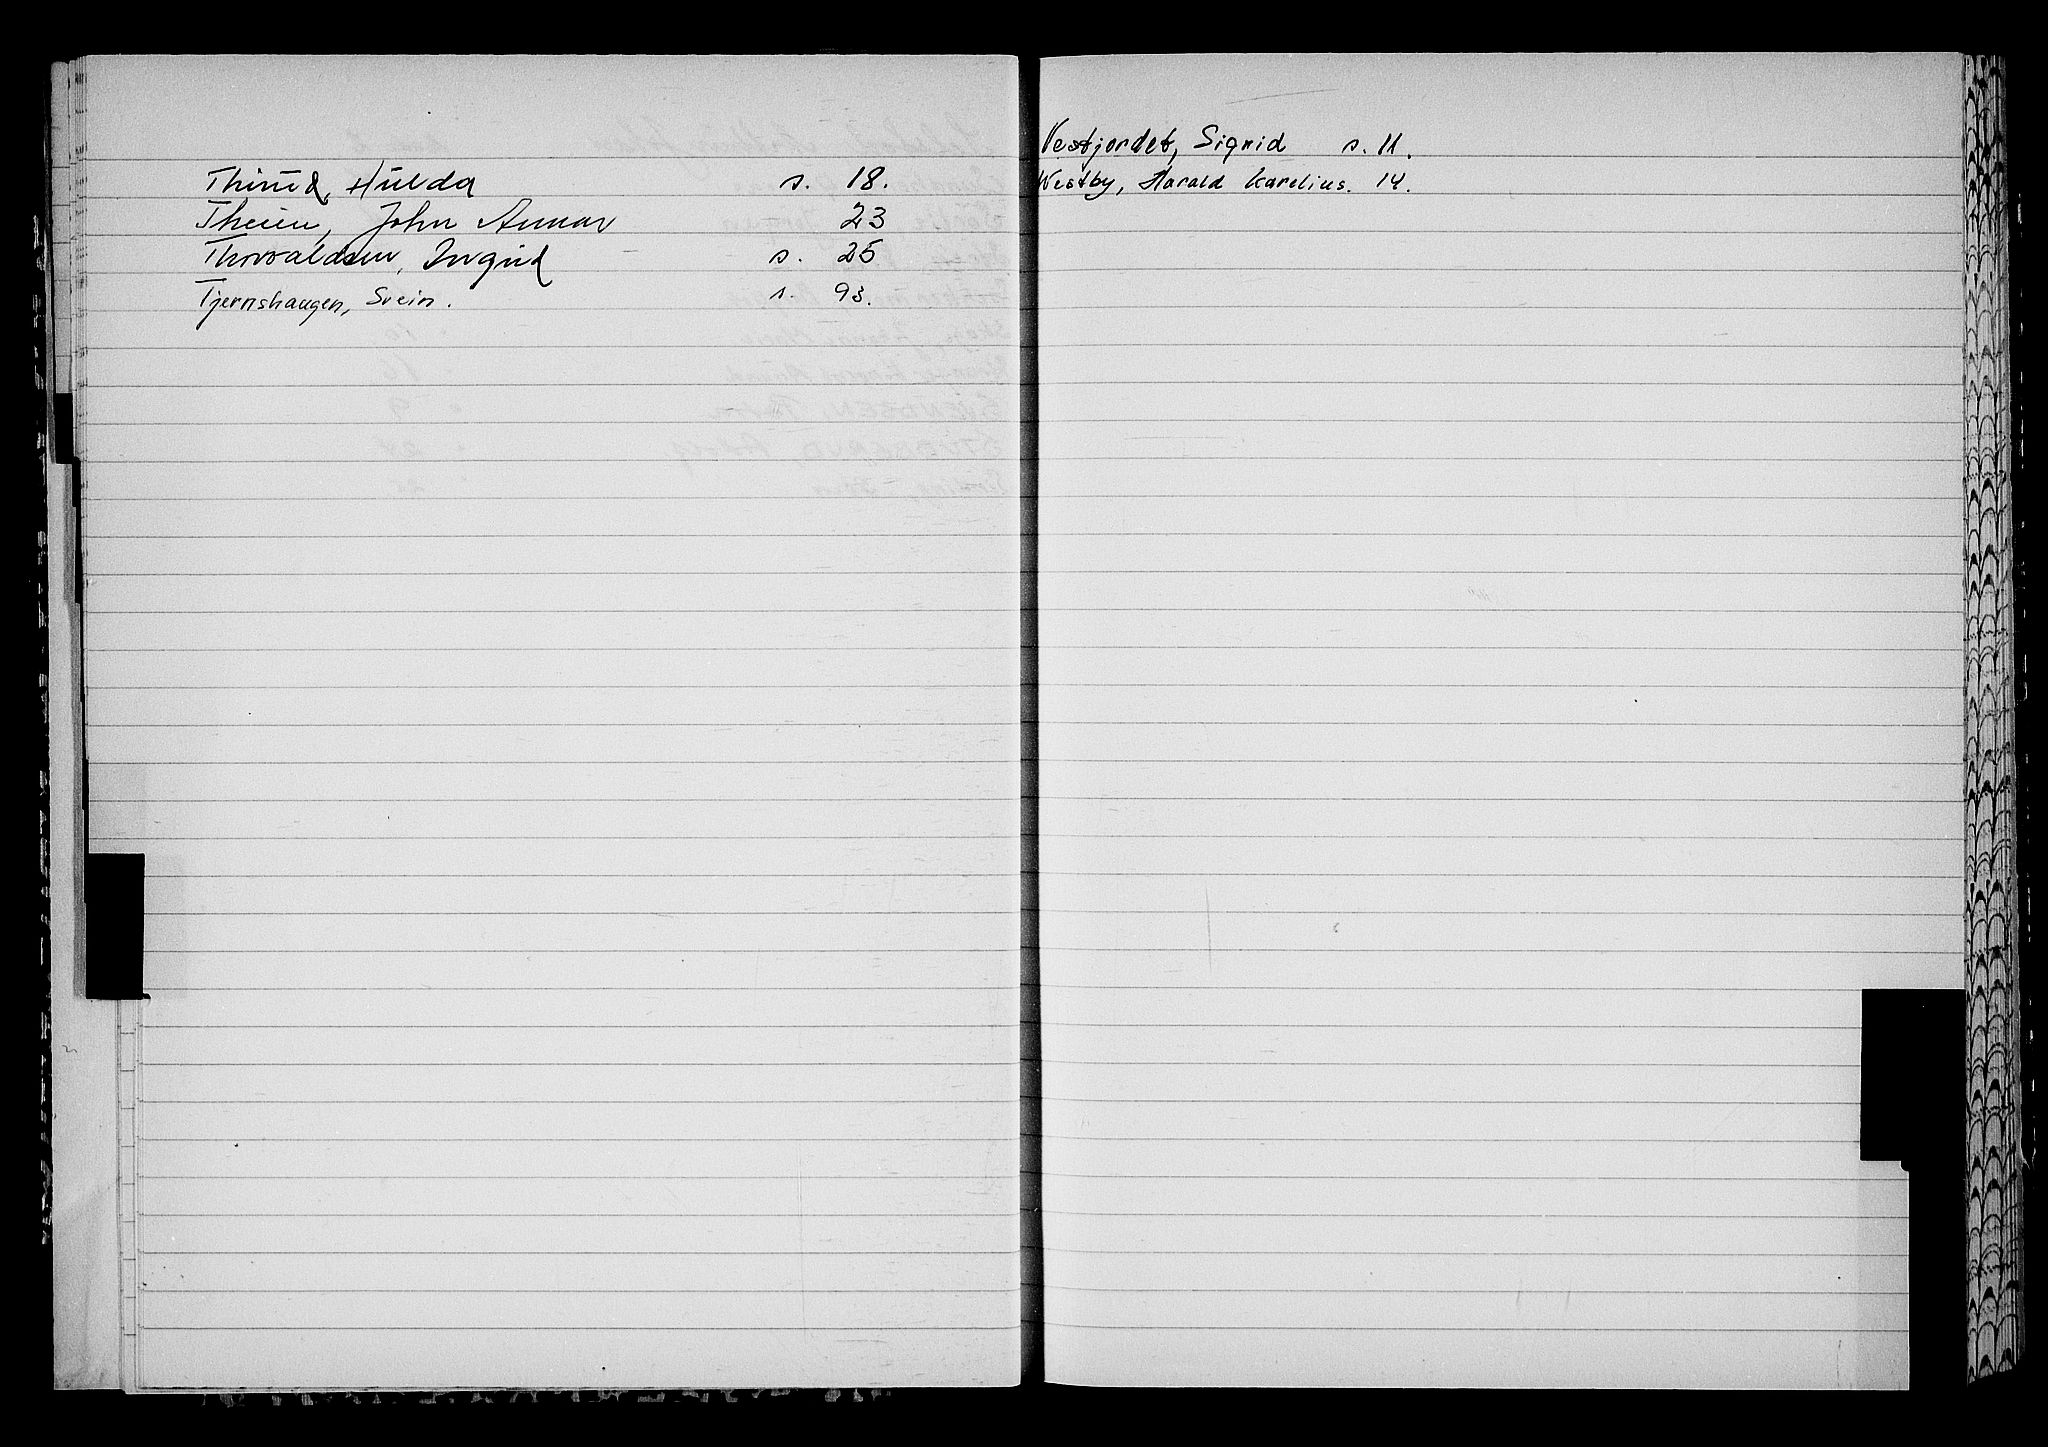 Hulda s. 18.
John 23
Thorvaldsen, Ingrid s. 25
Tjernshaugen, Svein. s. 93.
Vestjordet, Sigrid s. 11.
Westby, Harald Karelius. 14.